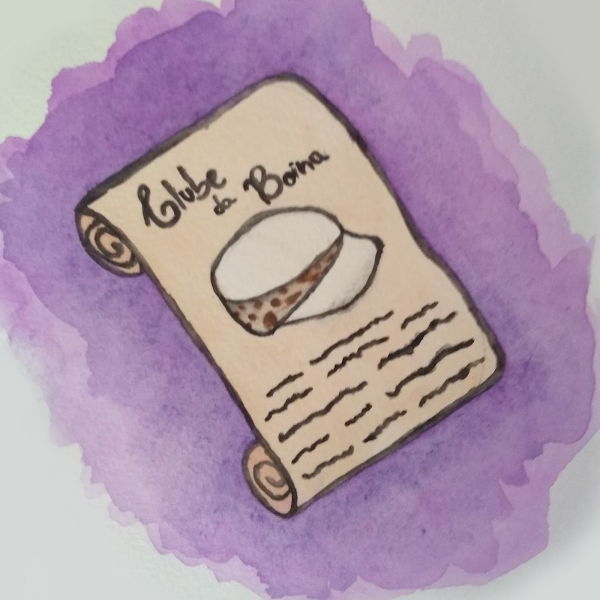 Clube da Boina